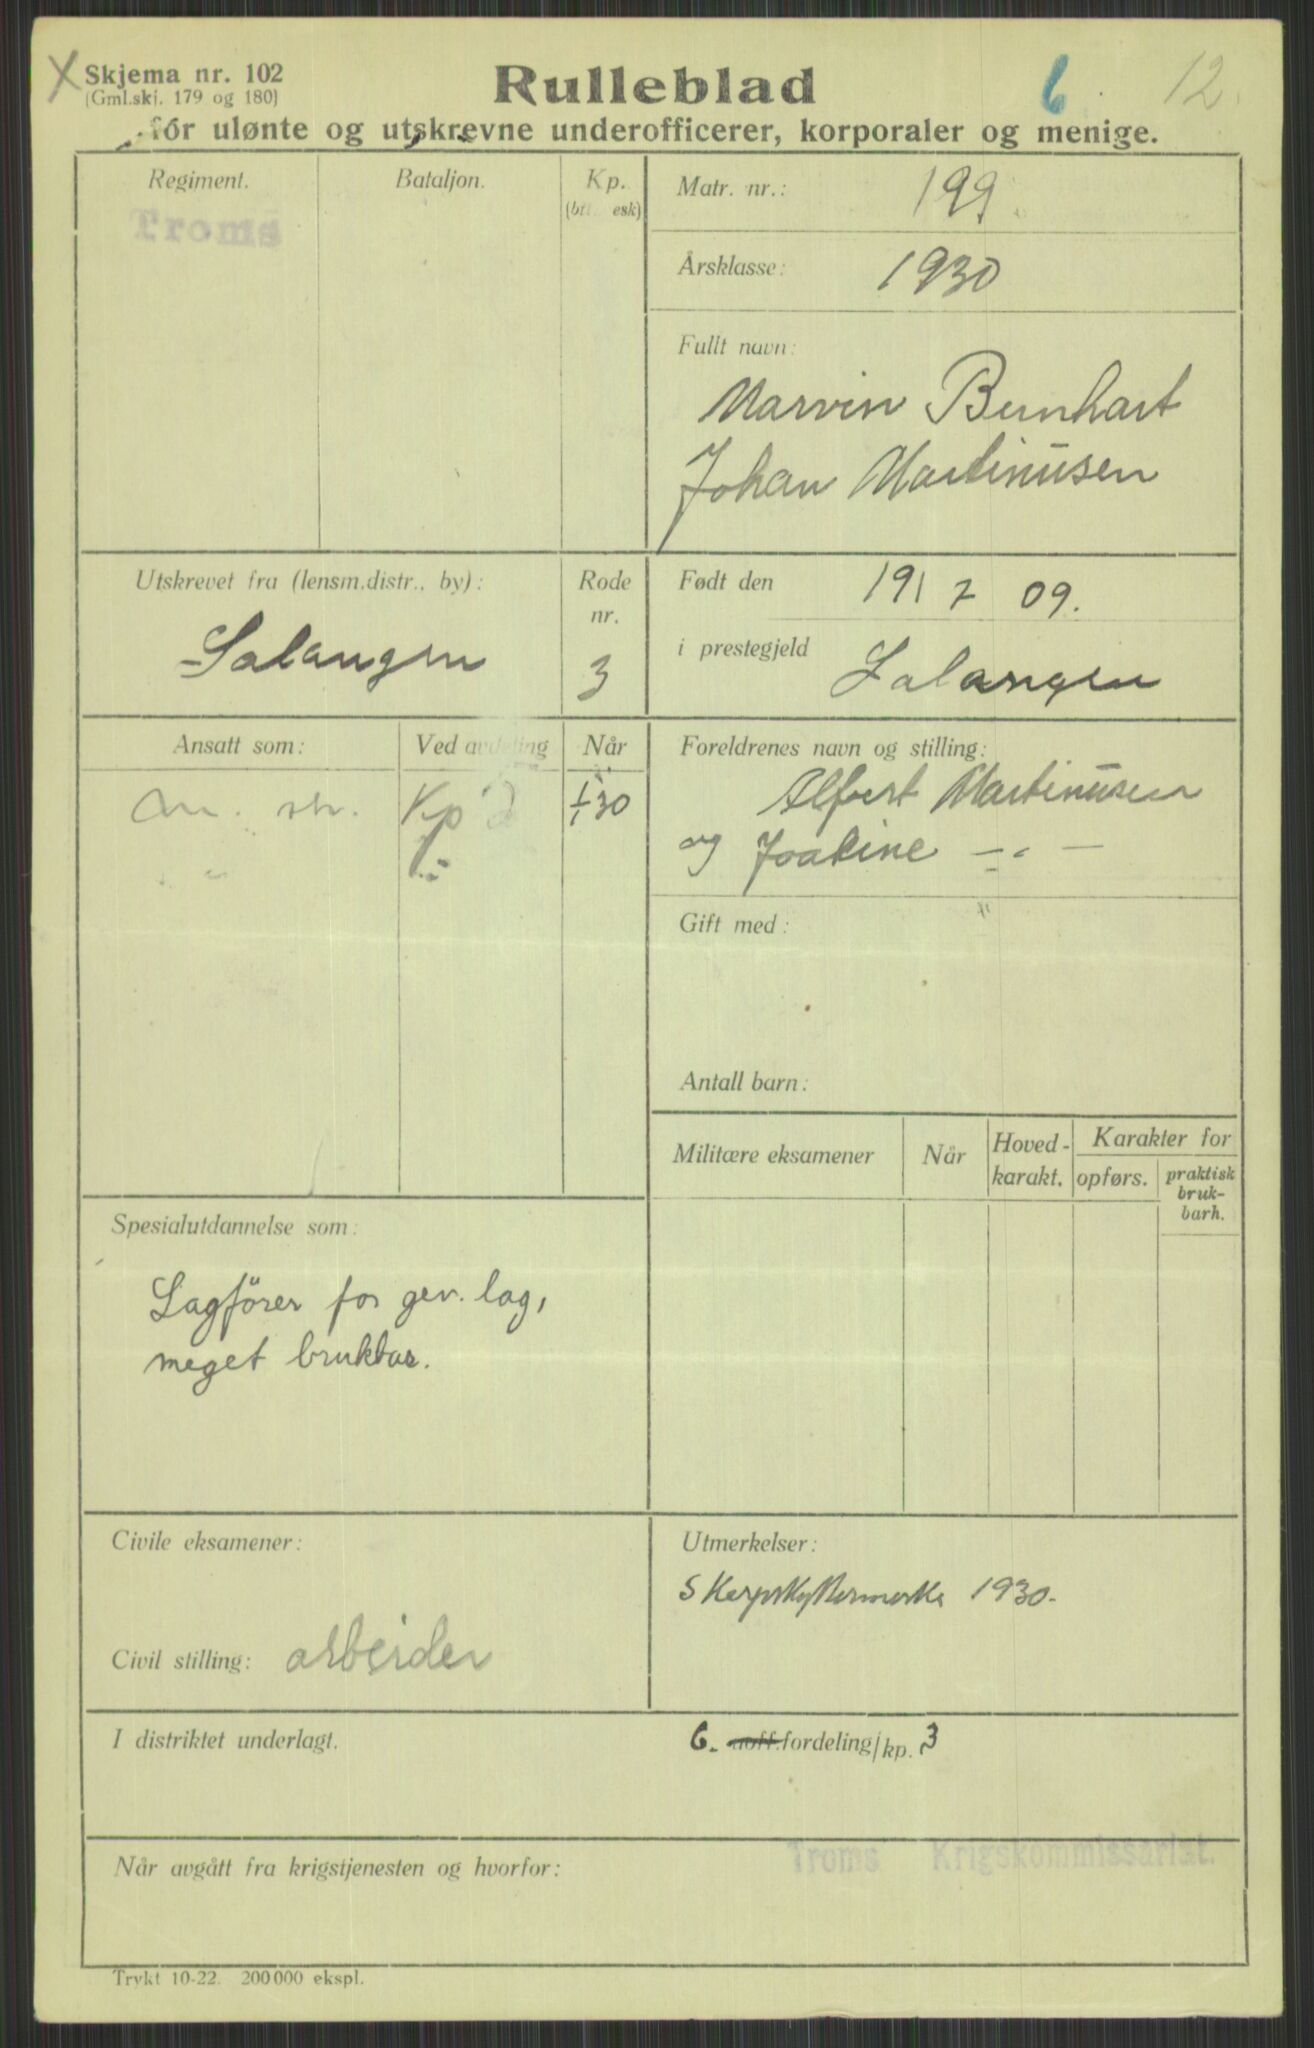 X Skjema nr. 102
(Gml.skj. 179 og 180)
Rulleblad
6. 12.
for ulønte og utskrevne underofficerer, korporaler og menige.
Regiment. Bataljon. Kp.
(btt. esk)
Troms
Matr. nr.: 199.
Årsklasse: 1930
Fullt navn:
Marvin Bernhart
Johan Martinusen
Utskrevet fra (lensm.distr., by):
Salangen
Rode
nr.
3
Født den 19/7 09.
i prestegjeld Salangen
Ansatt som: Ved avdeling Når
Kp 30
Foreldrenes navn og stilling:
Alfert Martinusen
og Joakine — „ —
Gift med:
Antall barn:
Militære eksamener Når Hoved-
karakt. Karakter for
opførs. praktisk
bruk-
barh.
Spesialutdannelse som:
Lagförer for gev. lag,
meget brukbar.
Civile eksamener:
Civil stilling: arbeider
Utmerkelser:
Skarpskyttermerke 1930.
I distriktet underlagt. 6. aoff.fordeling/kp. 3
Når avgått fra krigstjenesten og hvorfor:
Troms Krigskommissariat.
Trykt 10-22. 200 000 ekspl.